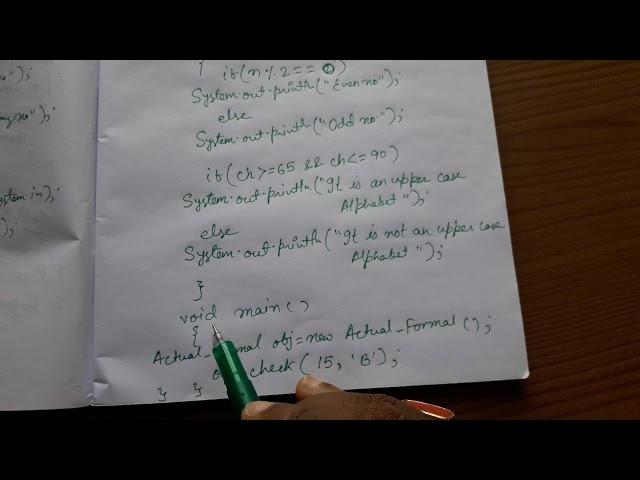 no");
my no");
System.in);
);
{ if(n%2==0)
System.out.println("Even no");
else
System.out.println("Odd no");
if(ch>=65 && ch<=90)
System.out.println("It is an upper case
Alphabet");
else
System.out.println("It is not an upper case
Alphabet");
}
void main()
{
Actual_ obj=new Actual_Formal();
check(15,'B');
} }